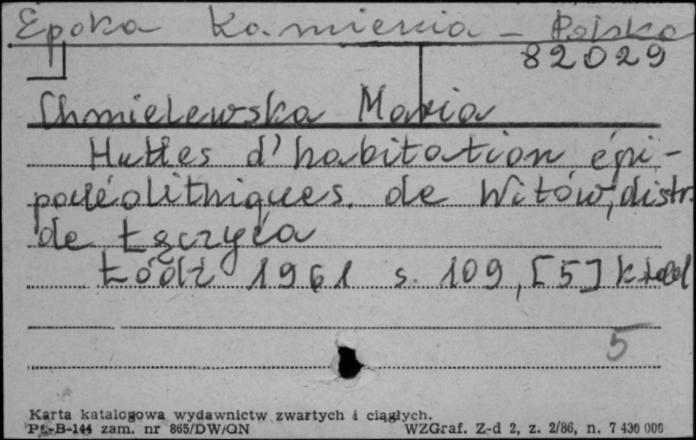 Epoka Kamienia - Polska
82029
Chmielewska Maria
Huttes d'habitation épi-
paléolithiques de Witów, distr.
de Łęczyca
Łódź 1961 s. 109, [5]
5
Karta katalogowa wydawnictw zwartych i ciągłych.
Pu-B-144 zam. nr 865/DW/QN WZGraf. Z-d 2, z. 2/86, n. 7 430 000